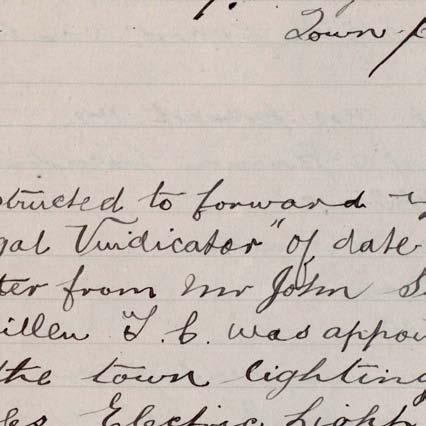 Town
structed to forward
gal Vindicator" of date
ter from Mr John S
illen T. C. was appoi
the town lighting
les Electric Light